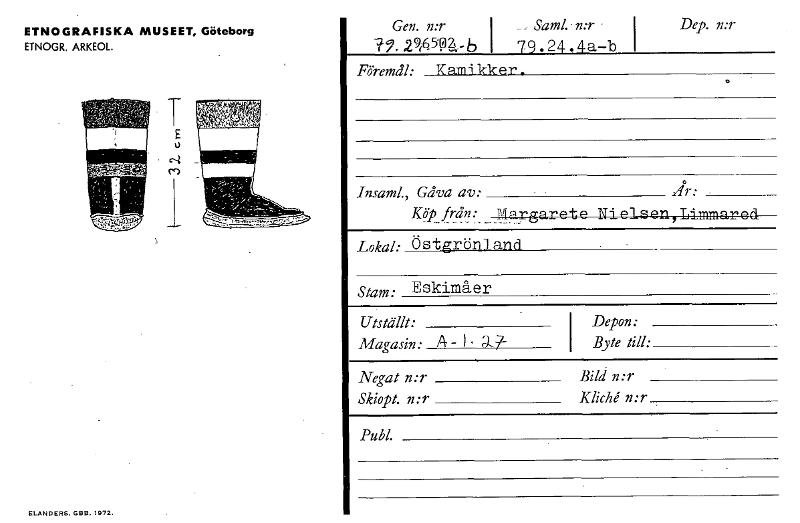 ETNOGRAFISKA MUSEET, Göteborg
ETNOGR. ARKEOL.
32 cm
Gen. n:r Saml. n:r Dep. n:r
79.24.4a-b
Föremål: Kamikker.
Insaml., Gåva av: År:
Köp från: Margarete Nielsen, Limmared
Lokal: Östgrönland
Stam: Eskimåer
Utställt: Depon:
Magasin: A-1.27 Byte till:
Negat n:r Bild n:r
Skiopt. n:r Kliché n:r
Publ.
ELANDERS. GBB. 1972.